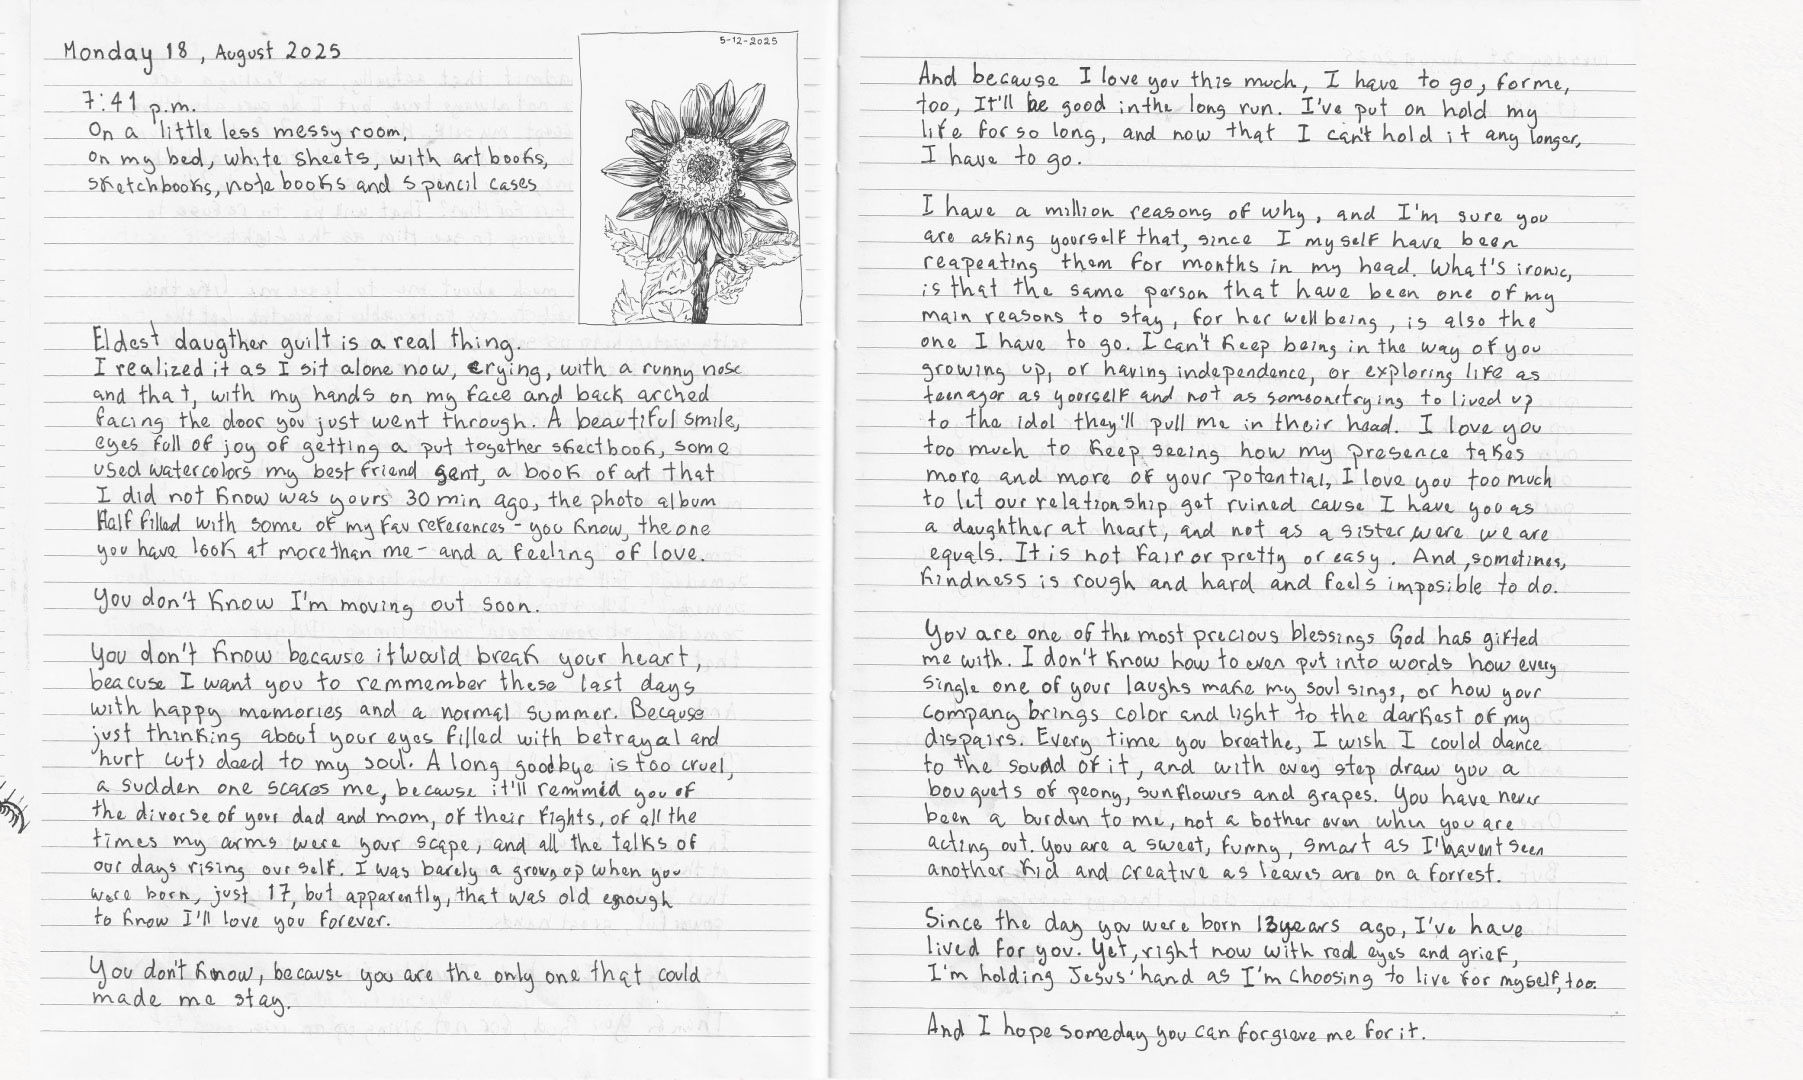 Monday 18, August 2025
5-12-2025
7:41 p.m.
On a little less messy room,
on my bed, white sheets, with art books,
sketchbooks, notebooks and 5 pencil cases
Eldest daugther guilt is a real thing.
I realized it as I sit alone now, crying, with a runny nose
and that, with my hands on my face and back arched
facing the door you just went through. A beautiful smile,
eyes full of joy of getting a put together skectbook, some
used watercolors my best friend sent, a book of art that
I did not know was yours 30 min ago, the photo album
Half filled with some of my fav references - you know, the one
you have look at more than me - and a feeling of love.
You don't know I'm moving out soon.
You don't know because it would break your heart,
beacuse I want you to remmember these last days
with happy memories and a normal summer. Because
just thinking about your eyes filled with betrayal and
hurt cuts deed to my soul. A long goodbye is too cruel,
a sudden one scares me, because it'll remmid you of
the divorse of your dad and mom, of their fights, of all the
times my arms were your scape, and all the talks of
our days rising our self. I was barely a grown up when you
were born, just 17, but apparently, that was old enough
to know I'll love you forever.
You don't know, because you are the only one that could
made me stay.
And because I love you this much, I have to go, for me,
too, It'll be good in the long run. I've put on hold my
life for so long, and now that I can't hold it any longer,
I have to go.
I have a million reasons of why, and I'm sure you
are asking yourself that, since I myself have been
reapeating them for months in my head. What's ironic,
is that the same person that have been one of my
main reasons to stay, for her well being, is also the
one I have to go. I can't keep being in the way of you
growing up, or having independence, or exploring life as
teenager as yourself and not as someone trying to lived up
to the idol they'll pull me in their head. I love you
too much to keep seeing how my presence takes
more and more of your potential, I love you too much
to let our relationship get ruined cause I have you as
a daughther at heart, and not as a sister were we are
equals. It is not fair or pretty or easy. And, sometimes,
kindness is rough and hard and feels imposible to do.
You are one of the most precious blessings God has gifted
me with. I don't know how to even put into words how every
single one of your laughs make my soul sings, or how your
company brings color and light to the darkest of my
dispairs. Every time you breathe, I wish I could dance
to the sound of it, and with every step draw you a
bouquets of peony, sunflowers and grapes. You have never
been a burden to me, not a bother even when you are
acting out. You are a sweet, funny, smart as I havent seen
another kid and creative as leaves are on a forrest.
Since the day you were born 13 years ago, I've have
lived for you. Yet, right now with red eyes and grief,
I'm holding Jesus' hand as I'm choosing to live for myself, too.
And I hope someday you can forgieve me for it.